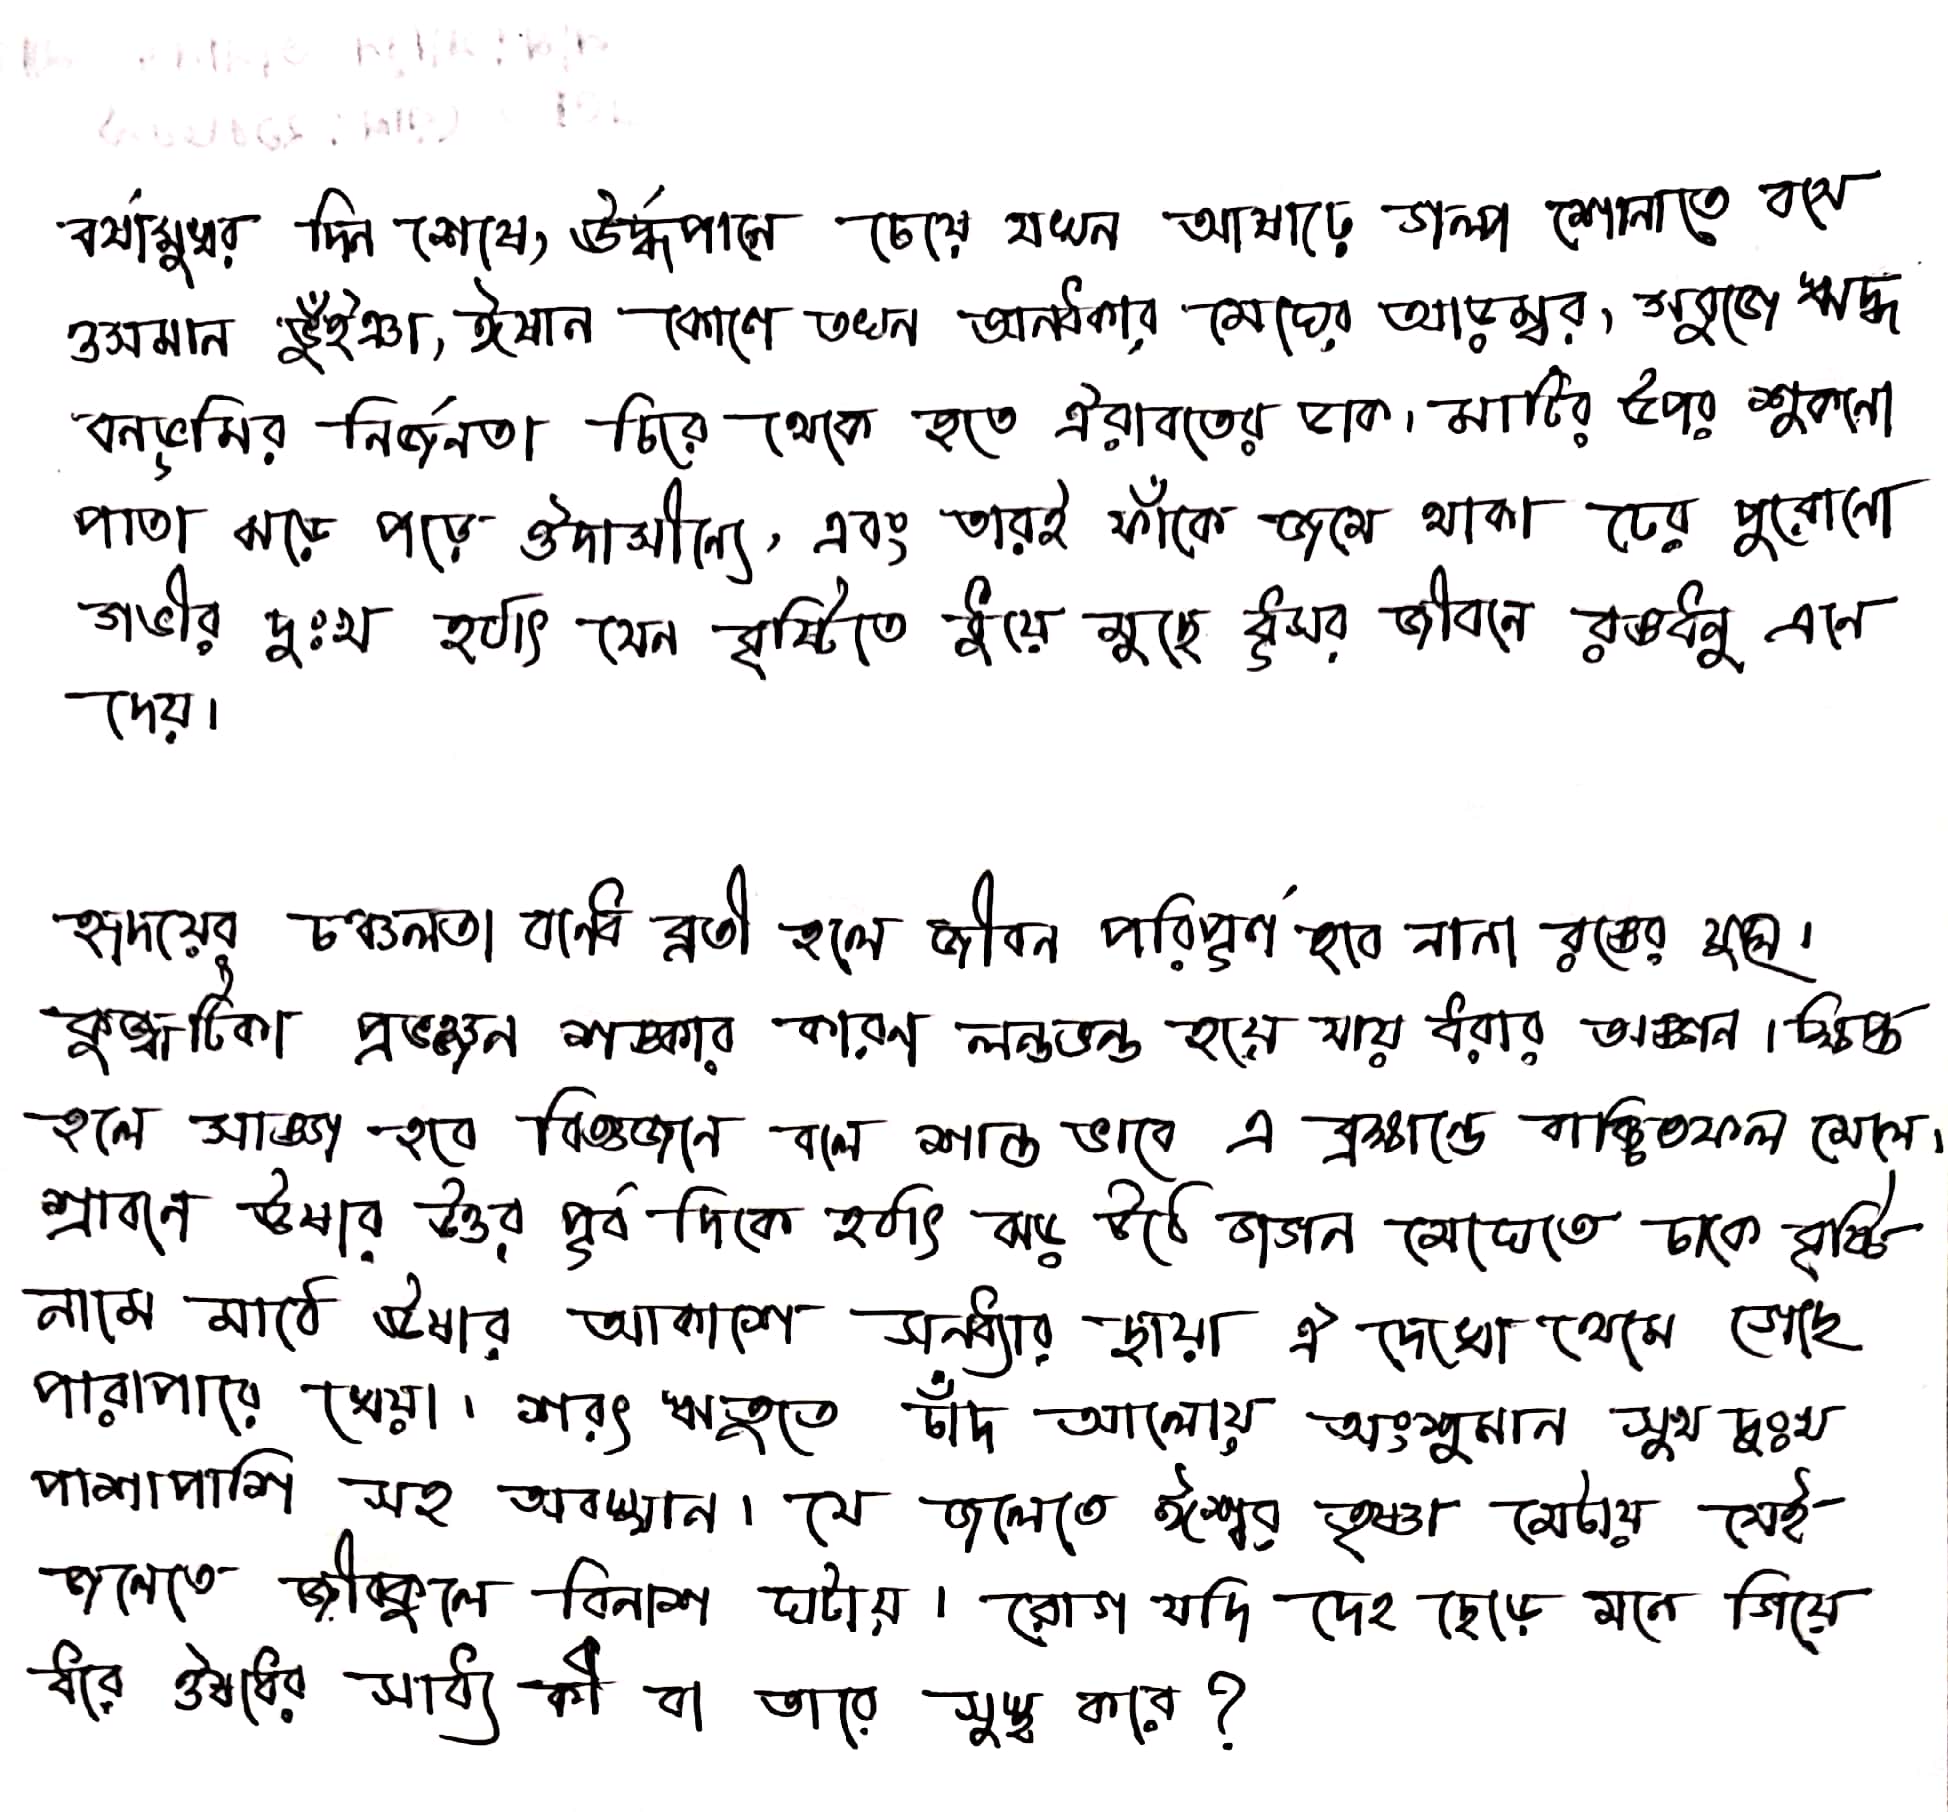 বর্ষামুখর দিন শেষে, ঊর্দ্ধপানে চেয়ে যখন আষাঢ়ে গল্প শোনাতে বসে
ওসমান ভুঁইঞা, ঈষান কোণে তখন অন্ধকার মেঘের আড়ম্বর, সবুজে ঋদ্ধ
বনভূমির নির্জনতা চিরে থেকে হতে ঐরাবতের ডাক। মাটির উপর শুকনো
পাতা ঝড়ে পড়ে ঔদাসীন্যে, এবং তারই ফাঁকে জমে থাকা ঢের পুরোনো
গভীর দুঃখ হঠাৎ যেন বৃষ্টিতে ধুঁয়ে মুছে ধূসর জীবনে রঙধনু এনে
দেয়।
হৃদয়ের চঞ্চলতা বন্ধে ব্রতী হলে জীবন পরিপূর্ণ হবে নানা রঙের
কুজ্ঝটিকা প্রভঞ্জন শঙ্কার কারণ লন্ডভন্ড হয়ে যায় ধরার অঙ্গন। ক্ষিপ্ত
হলে সাঙ্গ হবে বিজ্ঞজনে বলে শান্ত ভাবে এ ব্রহ্মান্ডে বাঞ্ছিতফল মেলে।
শ্রাবনে ঊষার উত্তর পূর্ব দিকে হঠাৎ ঝড় উঠে গগন মেঘেতে ঢাকে বৃষ্টি
নামে মাঠে ঊষার আকাশে সন্ধ্যার ছায়া ঐ দেখো থেমে গেছে
পারাপারে খেয়া। শরৎ ঋতুতে চাঁদ আলোয় অংশুমান সুখ দুঃখ
পাশাপাশি সহ অবস্থান। যে জলেতে ঈশ্বর তৃষ্ণা মেটায় সেই
জলেতে জীবকুলে বিনাশ ঘটায়। রোগ যদি দেহ ছেড়ে মনে গিয়ে
ধরে ঔষধের সাধ্য কী বা তারে সুস্থ করে?